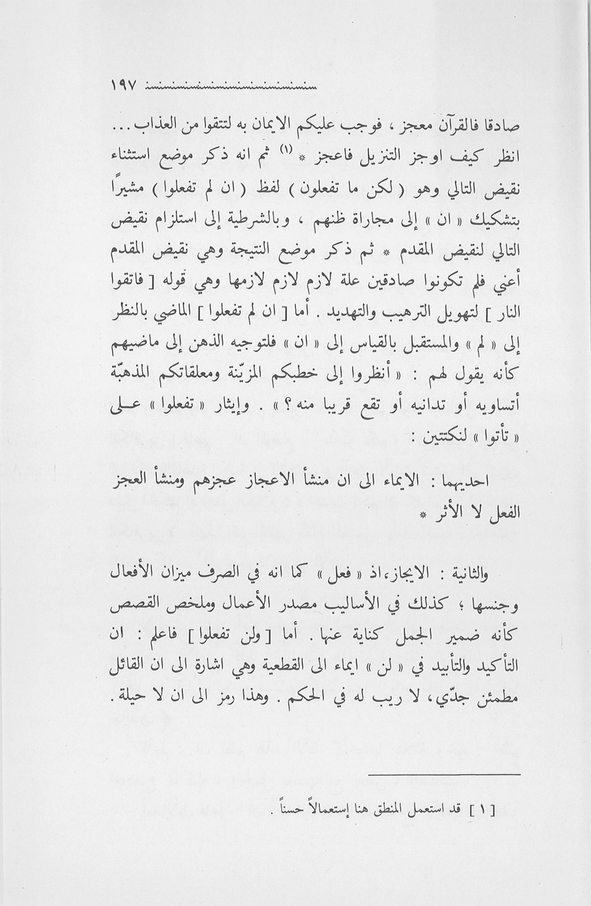 ١٩٧
صادقا فالقرآن معجز ، فوجب عليكم الايمان به لتتقوا من العذاب ...
انظر كيف اوجز التنزيل فاعجز * (١) ثم انه ذكر موضع استثناء
نقيض التالي وهو ( لكن ما تفعلون ) لفظ ( ان لم تفعلوا ) مشيرًا
بتشكيك « ان » إلى مجاراة ظنهم ، وبالشرطية إلى استلزام نقيض
التالي لنقيض المقدم * ثم ذكر موضع النتيجة وهي نقيض المقدم
أعني فلم تكونوا صادقين علة لازم لازم لازمها وهي قوله [ فاتقوا
النار ] لتهويل الترهيب والتهديد . أما [ ان لم تفعلوا ] الماضي بالنظر
إلى « لم » والمستقبل بالقياس إلى « ان » فلتوجيه الذهن إلى ماضيهم
كأنه يقول لهم : « أنظروا إلى خطبكم المزيّنة ومعلقاتكم المذهبّة
أتساويه أو تدانيه أو تقع قريبا منه ؟ » . وإيثار « تفعلوا » عـلى
« تأتوا » لنكتتين :
احديهما : الايماء الى ان منشأ الاعجاز عجزهم ومنشأ العجز
الفعل لا الأثر *
والثانية : الايجاز، اذ « فعل » كما انه في الصرف ميزان الأفعال
وجنسها ؛ كذلك في الأساليب مصدر الأعمال وملخص القصص
كأنه ضمير الجمل كناية عنها . أما [ ولن تفعلوا ] فاعلم : ان
التأكيد والتأبيد في « لن » ايماء الى القطعية وهي اشارة الى ان القائل
مطمئن جدّي، لا ريب له في الحكم . وهذا رمز الى ان لا حيلة .
[ ١ ] قد استعمل المنطق هنا إستعمالاً حسناً .